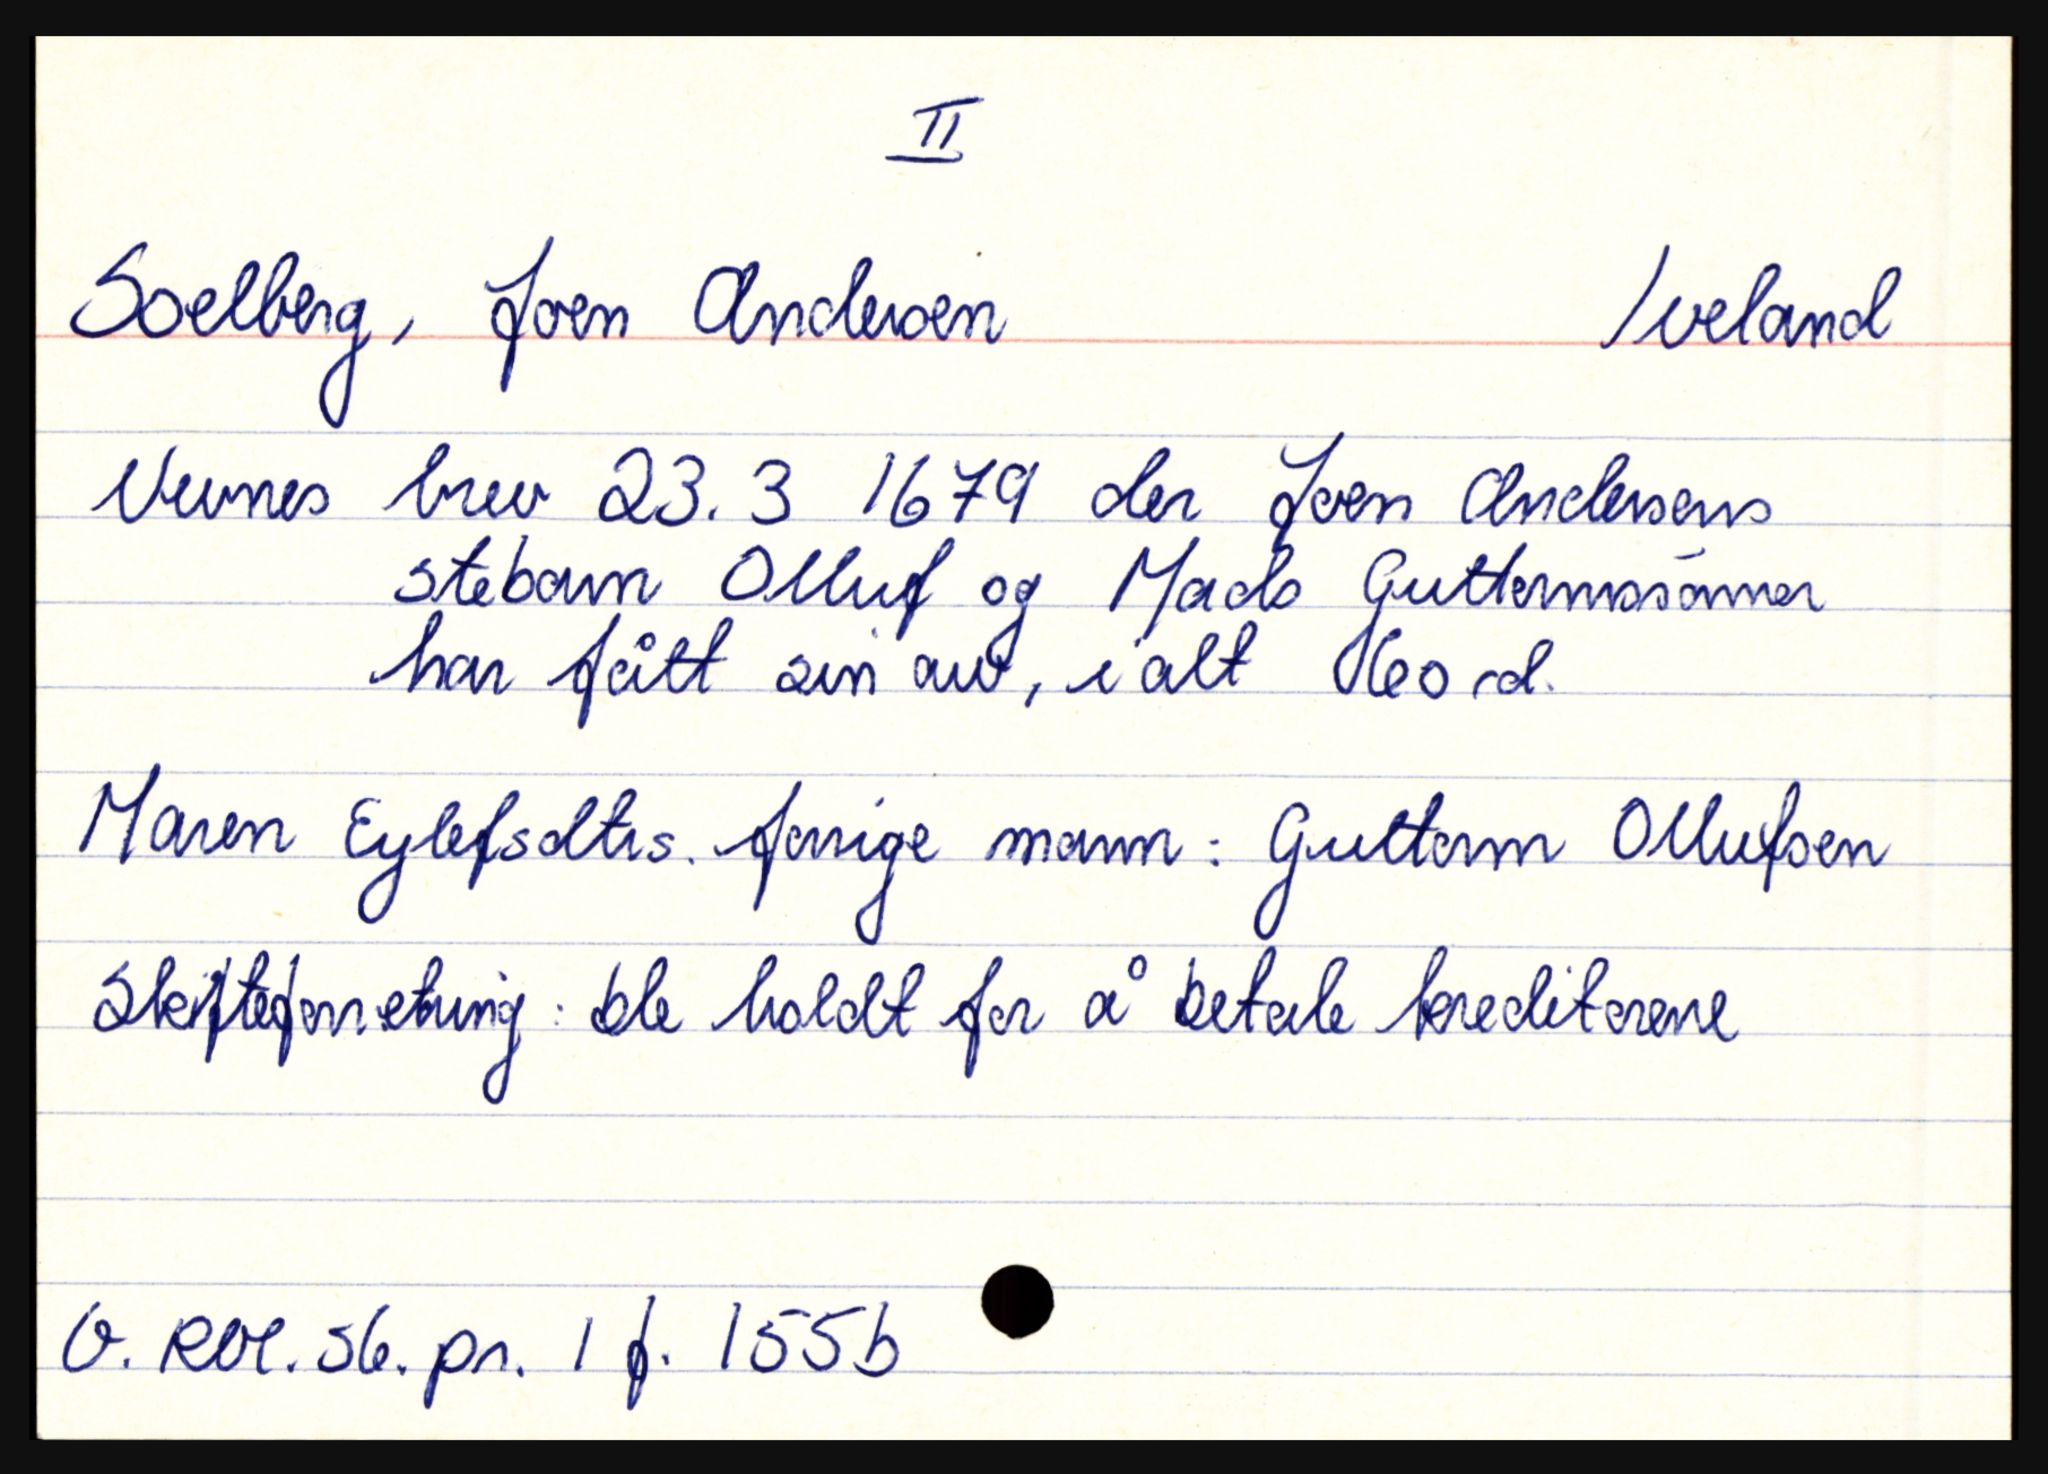 II
Soelberg, Joen Andersen Iveland
Vennes brev 23. 3 1679 der Joen Andersens
stebarn Olluf og Mads Guttormssønner
har fått sin arv, i alt 60 rd.
Maren Eylefsdtrs. forrige mann: Guttorm Ollufsen
Skifteforretning: ble holdt for å betale kreditorene
O. Rbl. sk. pr. 1 f. 155b